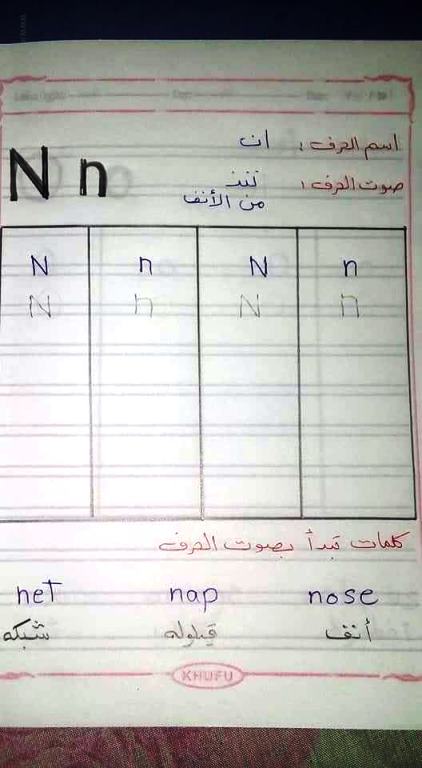 اسم الحرف : ان
N n
صوت الحرف : ننن
من الأنف
N n N n
N n N n
كلمات تبدأ بصوت الحرف
net nap nose
شبكه قيلوله أنف
KHUFU